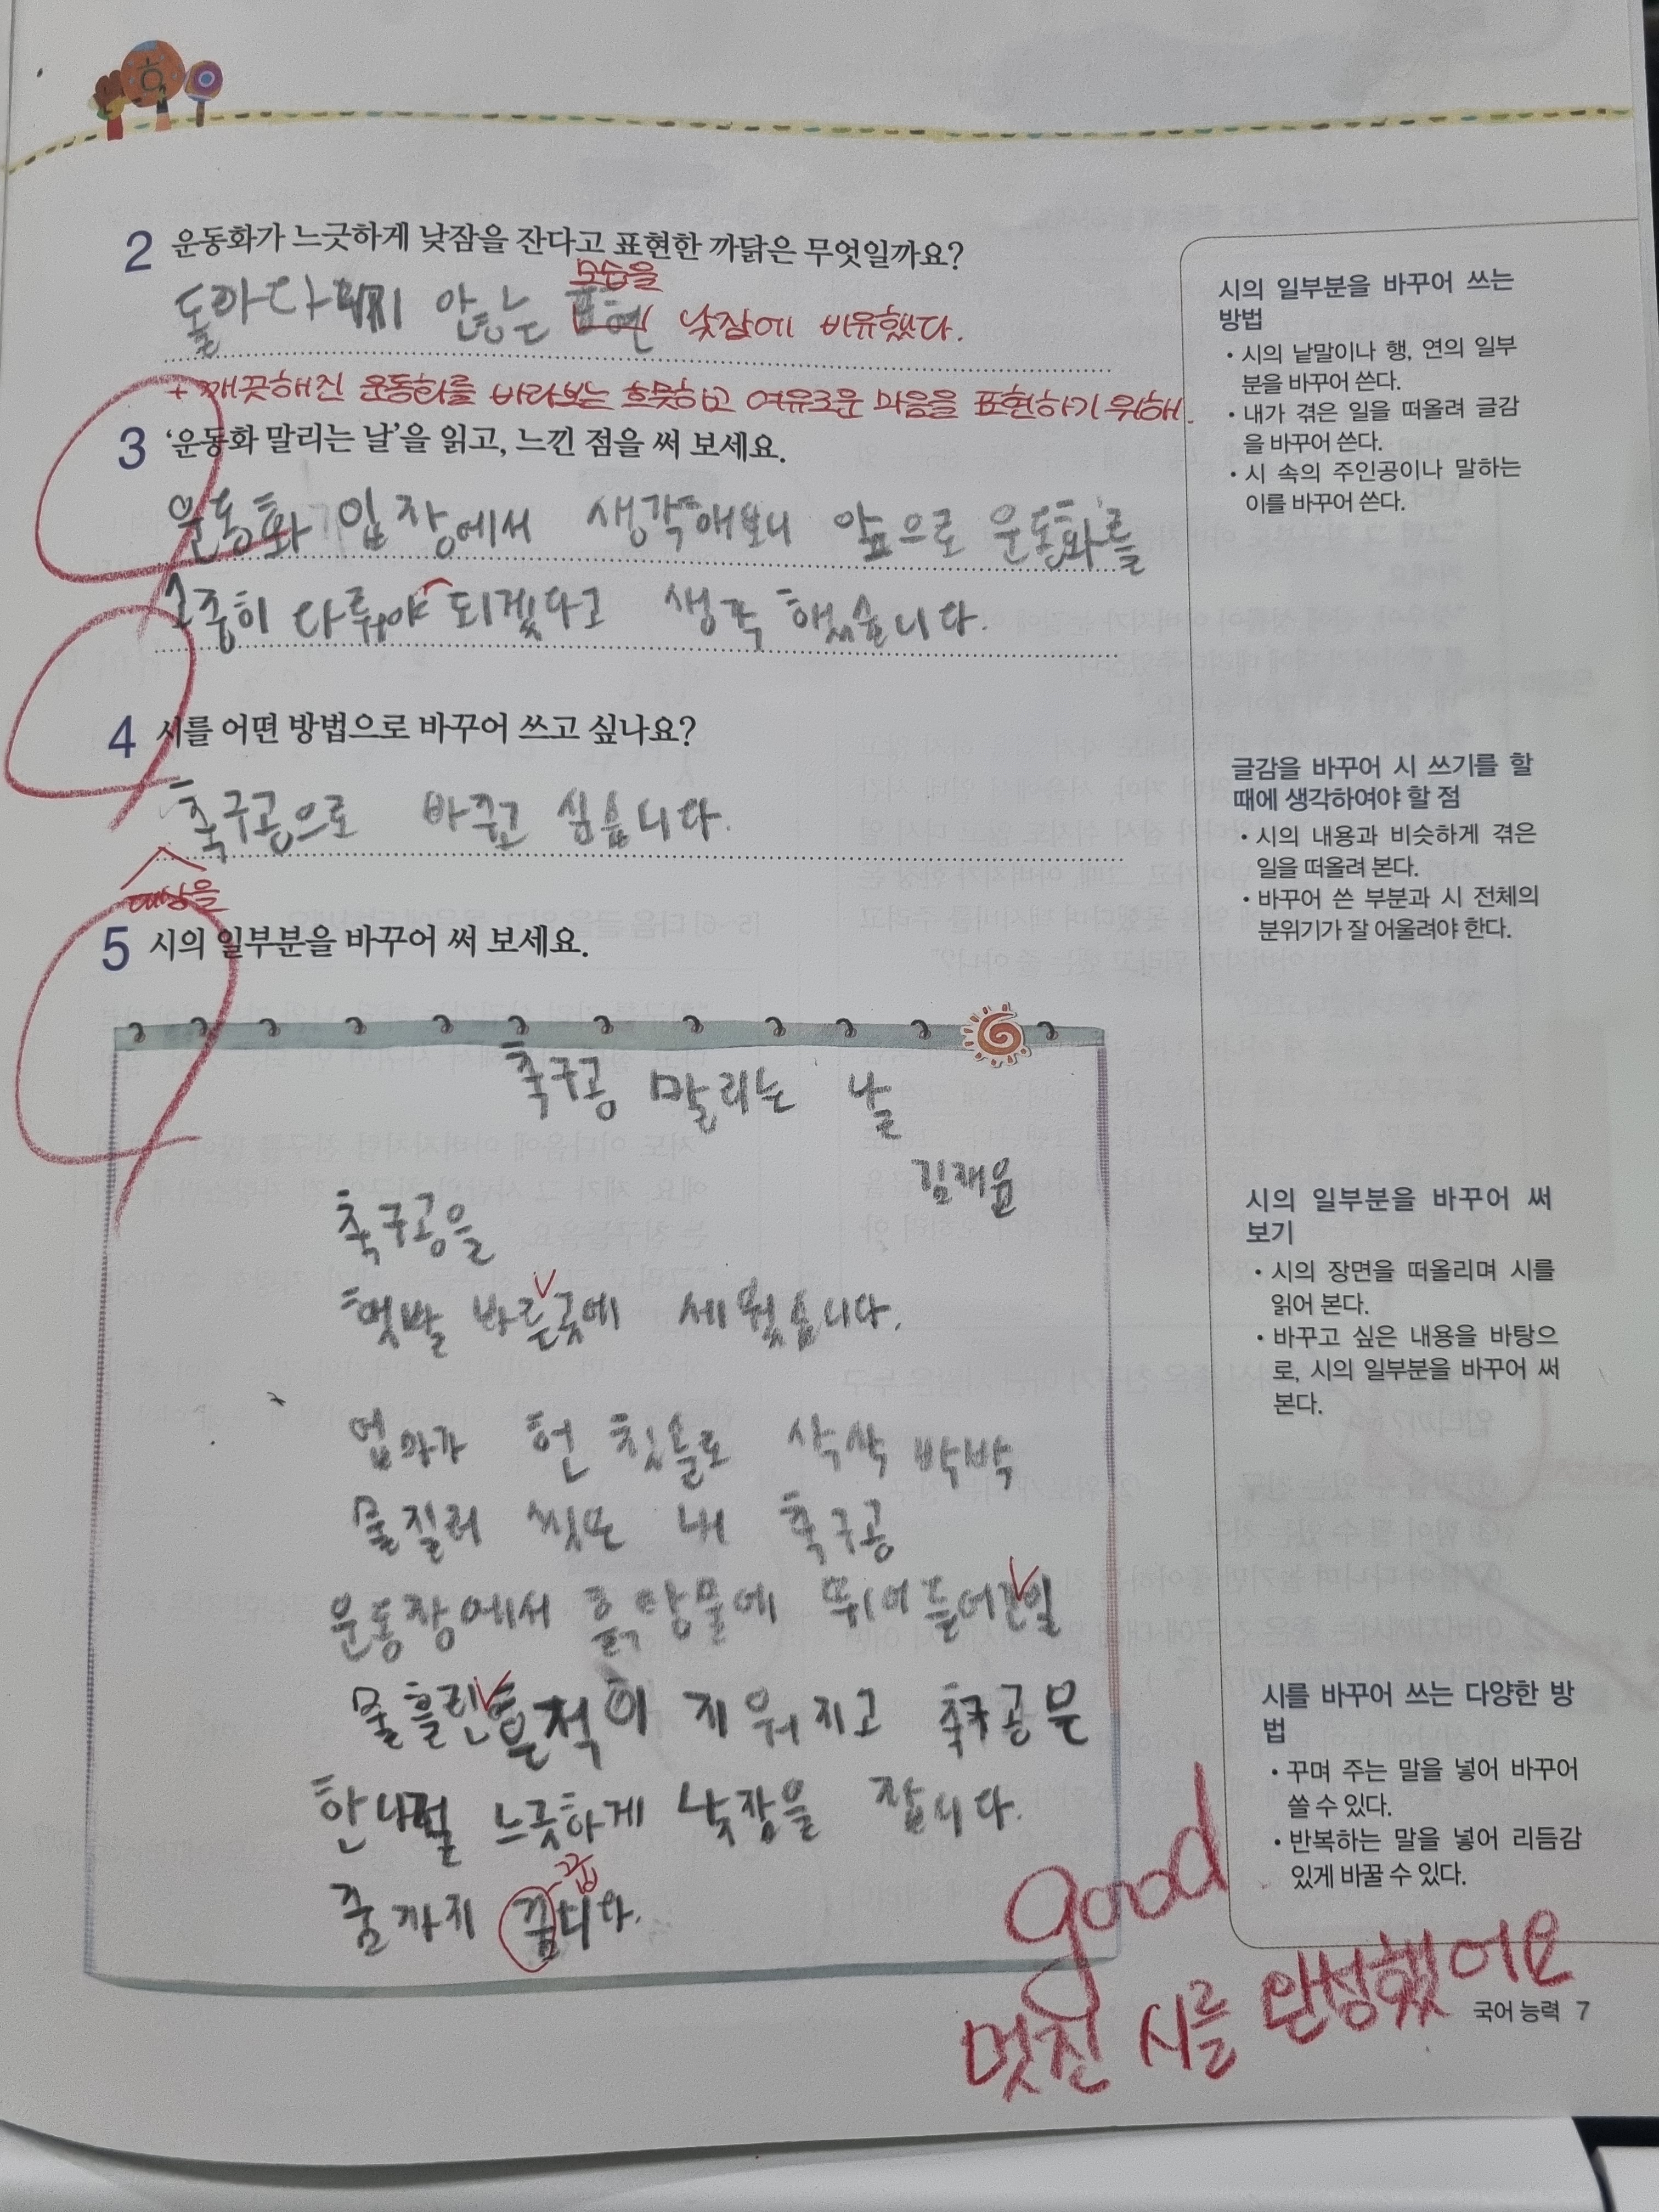 2 운동화가 느긋하게 낮잠을 잔다고 표현한 까닭은 무엇일까요?
모습을
돌아다니지 안는 표현 낮잠에 비유했다.
+ 깨끗해진 운동화를 바라보는 흐뭇하고 여유로운 마음을 표현하기 위해.
3 '운동화 말리는 날'을 읽고, 느낀 점을 써 보세요.
운동화 입장에서 생각해보니 앞으로 운동화를
소중히 다뤄야 되겠다고 생각 했습니다.
4 시를 어떤 방법으로 바꾸어 쓰고 싶나요?
축구공으로 바꾸고 싶습니다.
대상을
5 시의 일부분을 바꾸어 써 보세요.
축구공 말리는 날
김재윤
축구공을
햇발 바른곳에 세웠습니다.
엄마가 헌 칫솔로 싹싹 박박
물질러 씻또 내 축구공
운동장에서 흙탕물에 뛰어들어간일
물흘린 흔적이 지워지고 축구공은
한나절 느긋하게 낮잠을 잡니다.
꿉
꿈까지 꿈니다.
good
멋진 시를 완성했어요
시의 일부분을 바꾸어 쓰는
방법
• 시의 낱말이나 행, 연의 일부
분을 바꾸어 쓴다.
• 내가 겪은 일을 떠올려 글감
을 바꾸어 쓴다.
• 시 속의 주인공이나 말하는
이를 바꾸어 쓴다.
글감을 바꾸어 시 쓰기를 할
때에 생각하여야 할 점
• 시의 내용과 비슷하게 겪은
일을 떠올려 본다.
• 바꾸어 쓴 부분과 시 전체의
분위기가 잘 어울려야 한다.
시의 일부분을 바꾸어 써
보기
• 시의 장면을 떠올리며 시를
읽어 본다.
• 바꾸고 싶은 내용을 바탕으
로, 시의 일부분을 바꾸어 써
본다.
시를 바꾸어 쓰는 다양한 방
법
• 꾸며 주는 말을 넣어 바꾸어
쓸 수 있다.
• 반복하는 말을 넣어 리듬감
있게 바꿀 수 있다.
국어 능력 7